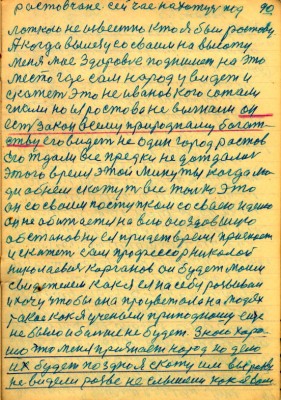 ростовчане сейчас находуся под 90
ложкое не известно кто я был ростову
А когда вылез со своим на высоту
меня мое Здоровье поднимет на это
место где сам народ увидет и
скажет это не иванов кого согнали
гнали но из ростова не выгнали он
есть закон всему природному богат-
ству его видет не один город ростов
его ждали все предки не дождалися
этого время этой минуты когда лю-
ди об нем скажут все только это
он со своим поступком со своею идеею
он не обижается на всю создавшую
обстановку ему придет время
и скажет сам профессор николай
николаевич карганов он будет моим
свидетелем как я ей на себе развивал
и хочу чтобы она процветала на людях
такое как я учение природному еще
не было и больше не будет. Знаю хоро-
шо что меня признает народ но дело
их будет поздно я скажу им вы разве
не видели разве не слышали как я вам